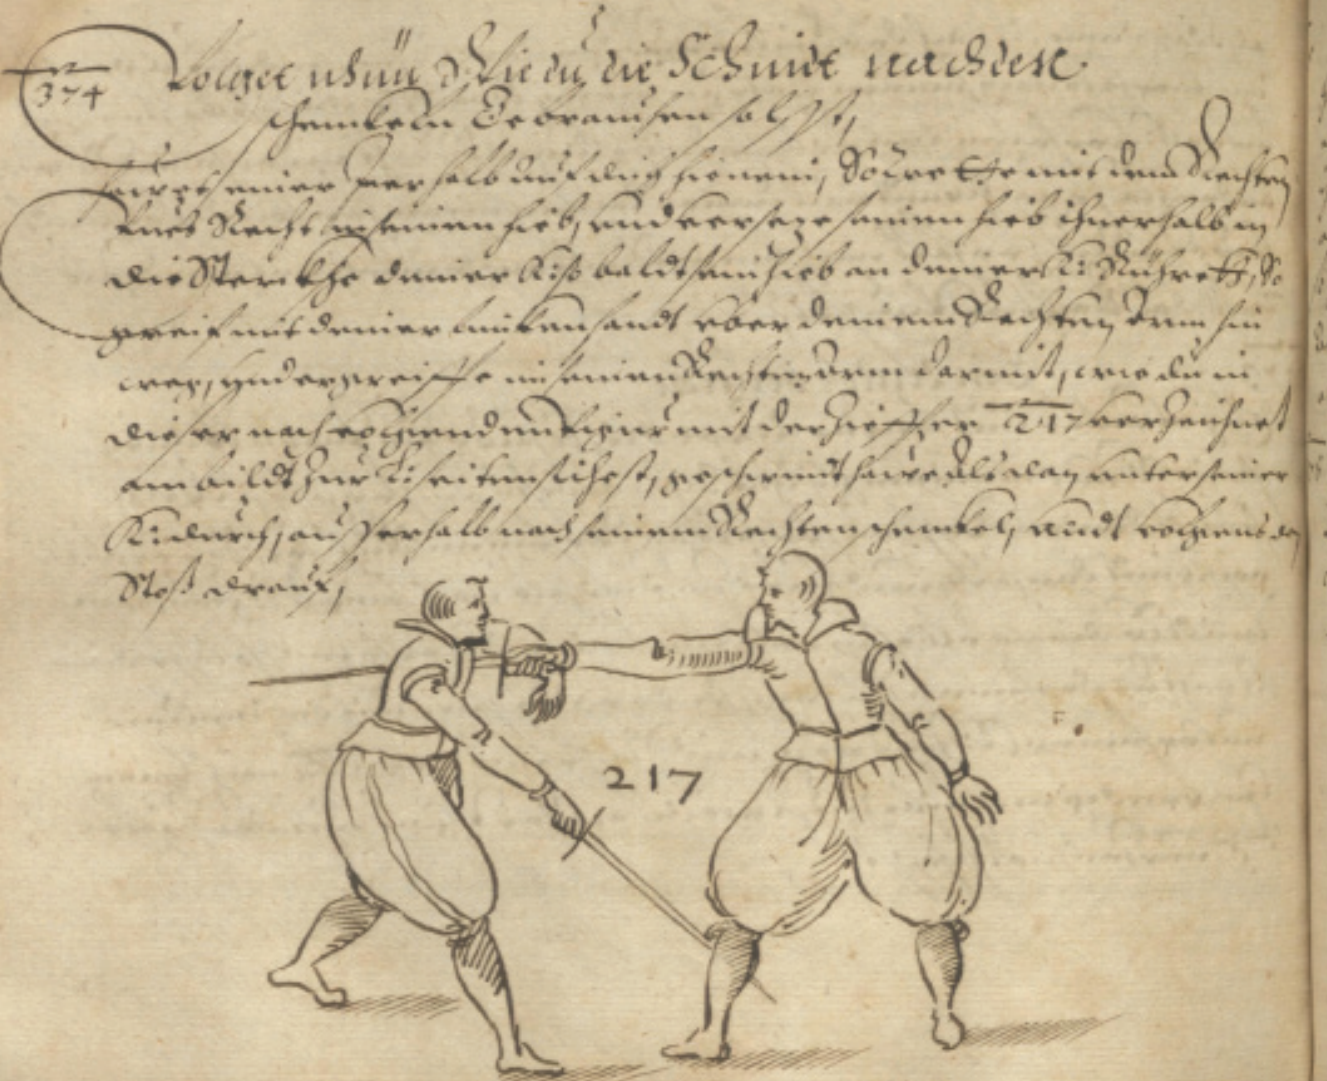 374 Volget nhun Wie du die Schnidt nach den
schenckeln Gebrauchen solst,
hawet einer Inerhalb auf dich hienein, So trette mit dem Rechten
Fues Recht in seinen hieb, und verseze seinen hieb ihnerhalb in
die Sterckhe deiner baldt sein hieb an deiner Rühret, So
greif mit deiner lincken handt uber deinem Rechten Arm hin
weg, under greiffe im seinen Rechten Arm darmit, wie du in
dieser nach volgenden Figur mit der Zieffer 217 verzeichnet
am bildt zur seiten sichest, geschwindt hawe als dan unter seiner
durch, ausserhalb nach seinem Rechten schenckel, undt volgens
Stoß drauf,
217